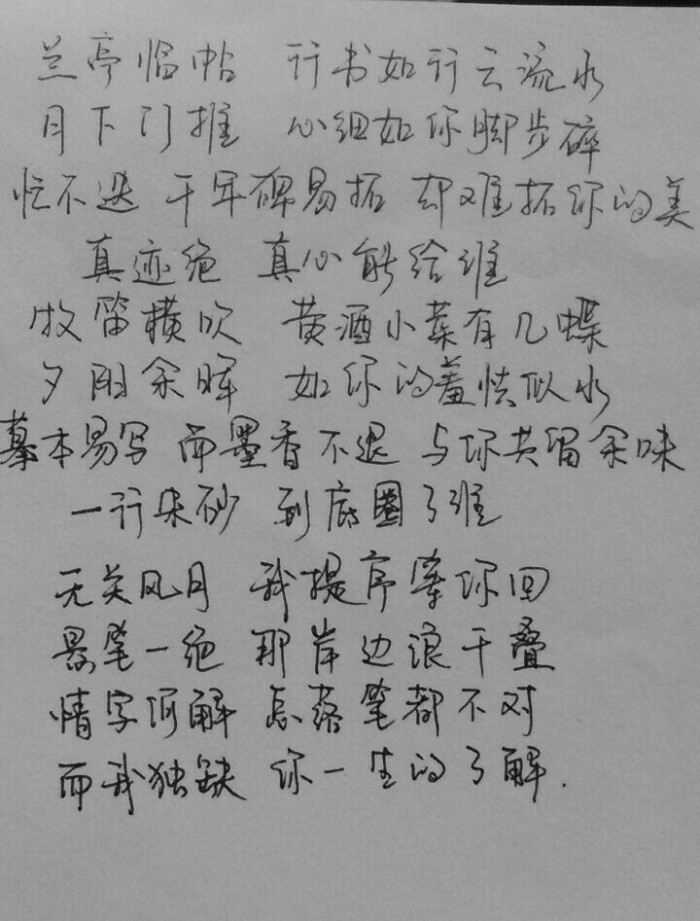 兰亭临帖 行书如行云流水
月下门推 心细如你脚步碎
忙不迭 千年碑易拓 却难拓你的美
真迹绝 真心能给谁
牧笛横吹 黄酒小菜有几碟
夕阳余晖 如你的羞怯似水
摹本易写 而墨香不退 与你共留余味
一行朱砂 到底圈了谁
无关风月 我提序等你回
悬笔一绝 那岸边浪千叠
情字何解 怎落笔都不对
而我独缺 你一生的了解.